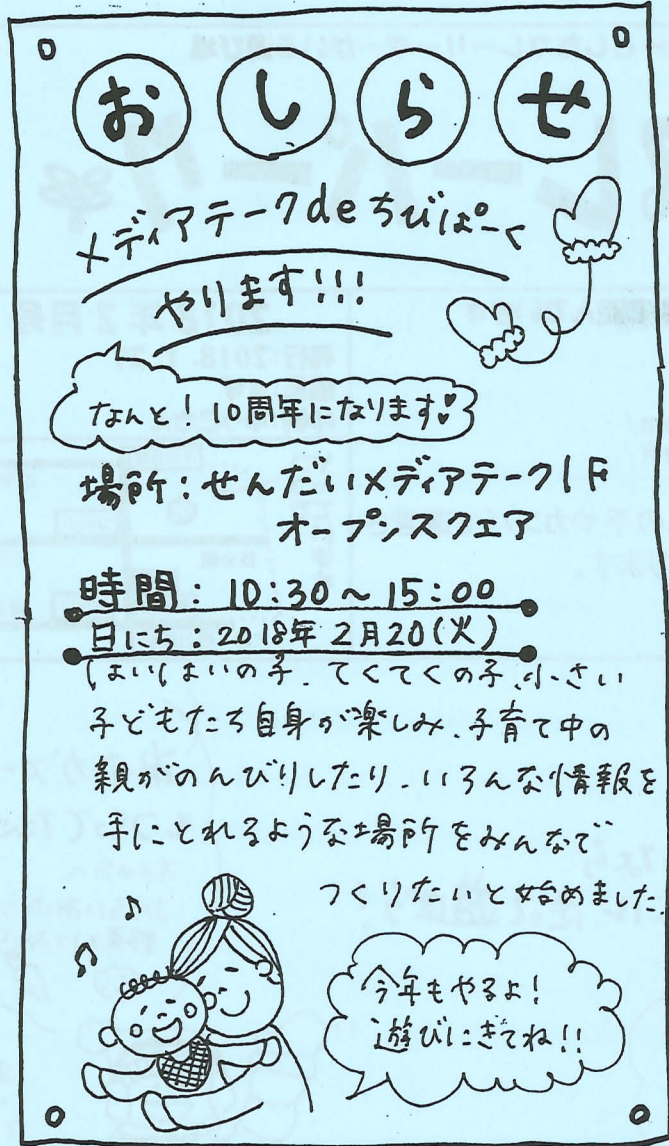 おしらせ
メディアテークdeちびぱーく
やります!!!
なんと!10周年になります
場所:せんだいメディアテーク1F
オープンスクエア
時間:10:30〜15:00
日にち:2018年2月20(火)
はいはいの子、てくてくの子、小さい
子どもたち自身が楽しみ、子育て中の
親がのんびりしたり、いろんな情報を
手にとれるような場所をみんなで
つくりたいと始めました。
今年もやるよ!
遊びにきてね!!